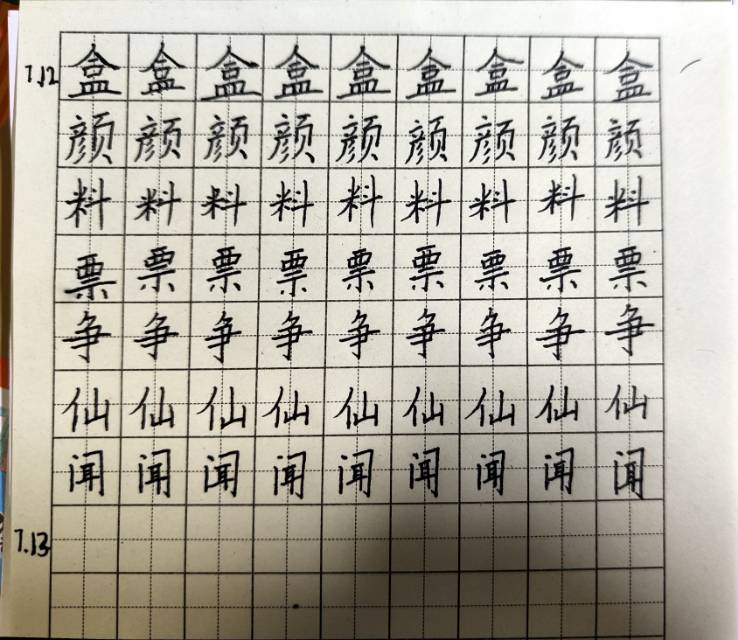 7.12 盒 盒 盒 盒 盒 盒 盒 盒 盒
颜 颜 颜 颜 颜 颜 颜 颜 颜
料 料 料 料 料 料 料 料 料
票 票 票 票 票 票 票 票 票
争 争 争 争 争 争 争 争 争
仙 仙 仙 仙 仙 仙 仙 仙 仙
闻 闻 闻 闻 闻 闻 闻 闻 闻
7.13